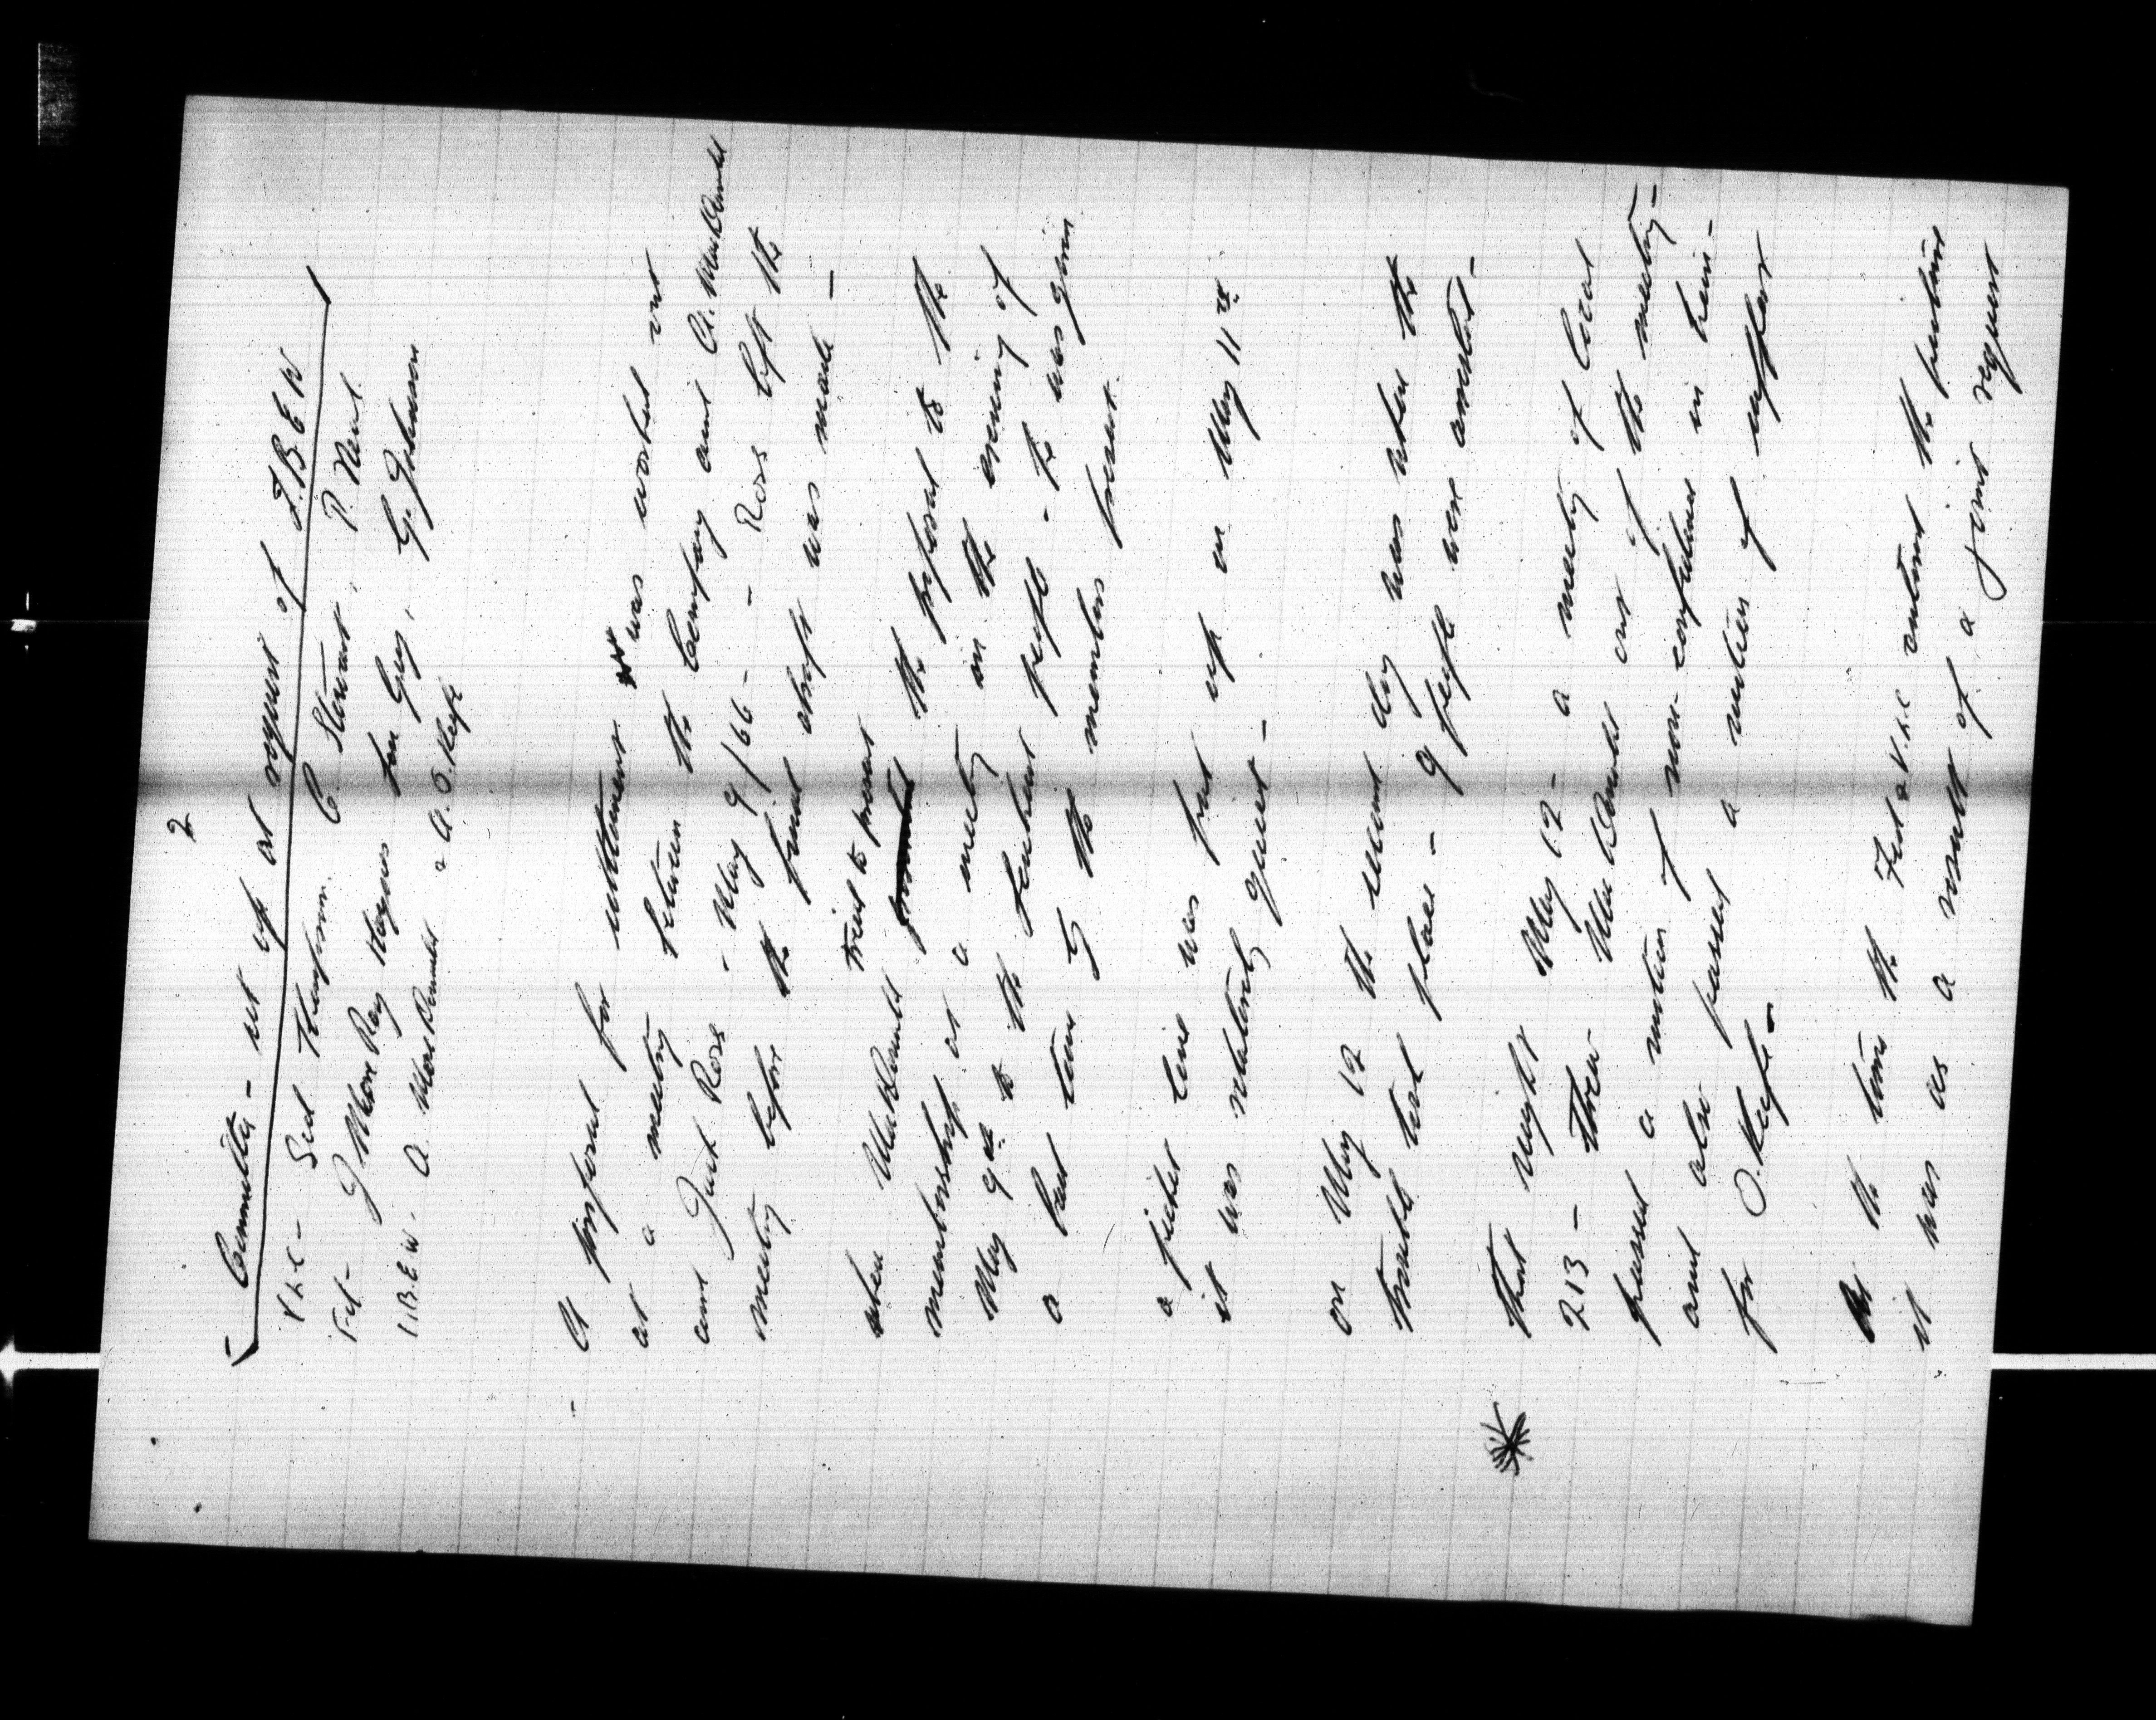 2
Committee - set up at request of I.B.E.W
V L C - Sid Thompson. C. Stewart, P. Neal
Fed - J MacR Ray Haynes Jon Gray, G. Johnson
I.B.E.W. A. MacDonald & A. O.Keefe
- A proposal for settlement was worked out
at a meeting between the Company and A. MacDonald
and Jack Ross - May 9/66 - Ross left the
meeting before the final draft was made -
when MacDonald tried to present the proposal to the
membership at a meeting on the evening of
May 9th to the Lenkurt people - he was given
a bad time by the members present.
a picket line was put up on May 11th
it was relatively quiet -
on May 12 the second day was when the
trouble took place - 9 people were arrested -
That night May 12 - a meeting of Local
213 - threw MacDonald out of the meeting -
passed a motion of non-confidence in him -
and also passed a motion of support
for O.Keefe -
At the time the Fed & V.L.C entered the picture
it was as a result of a joint request